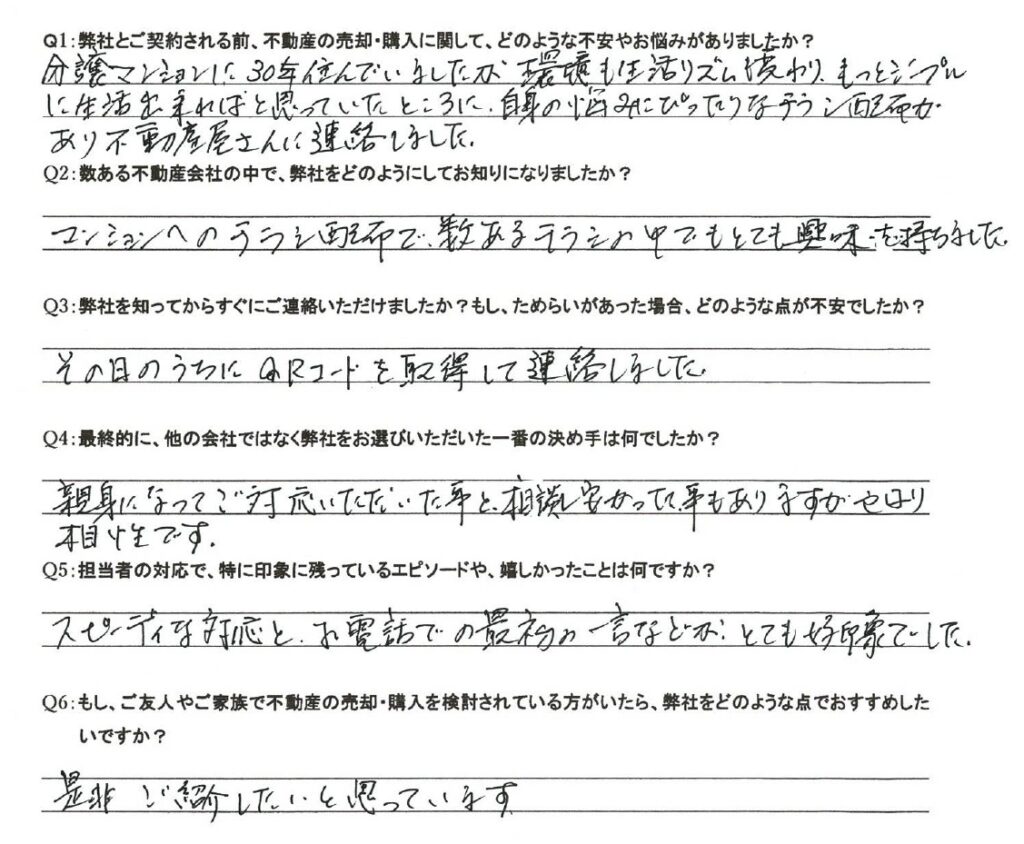 Q1:弊社とご契約される前、不動産の売却・購入に関して、どのような不安やお悩みがありましたか？
分譲マンションに30年住んでいましたが 環境も生活リズム変わり、もっとシンプル
に生活出来ればと思っていたところに、自身の悩みにぴったりなチラシ配布が
あり不動産屋さんに連絡しました。
Q2:数ある不動産会社の中で、弊社をどのようにしてお知りになりましたか？
マンションへのチラシ配布で、数あるチラシの中でもとても興味を持ちました。
Q3:弊社を知ってからすぐにご連絡いただけましたか？もし、ためらいがあった場合、どのような点が不安でしたか？
その日のうちにQRコードを取得して連絡しました。
Q4:最終的に、他の会社ではなく弊社をお選びいただいた一番の決め手は何でしたか？
親身になってご対応いただいた事と、相談し安かった事もありますがやはり
相性です。
Q5:担当者の対応で、特に印象に残っているエピソードや、嬉しかったことは何ですか？
スピーディな対応と、お電話での最初の一言などが、とても好印象でした。
Q6:もし、ご友人やご家族で不動産の売却・購入を検討されている方がいたら、弊社をどのような点でおすすめした
いですか？
是非 ご紹介したいと思っています